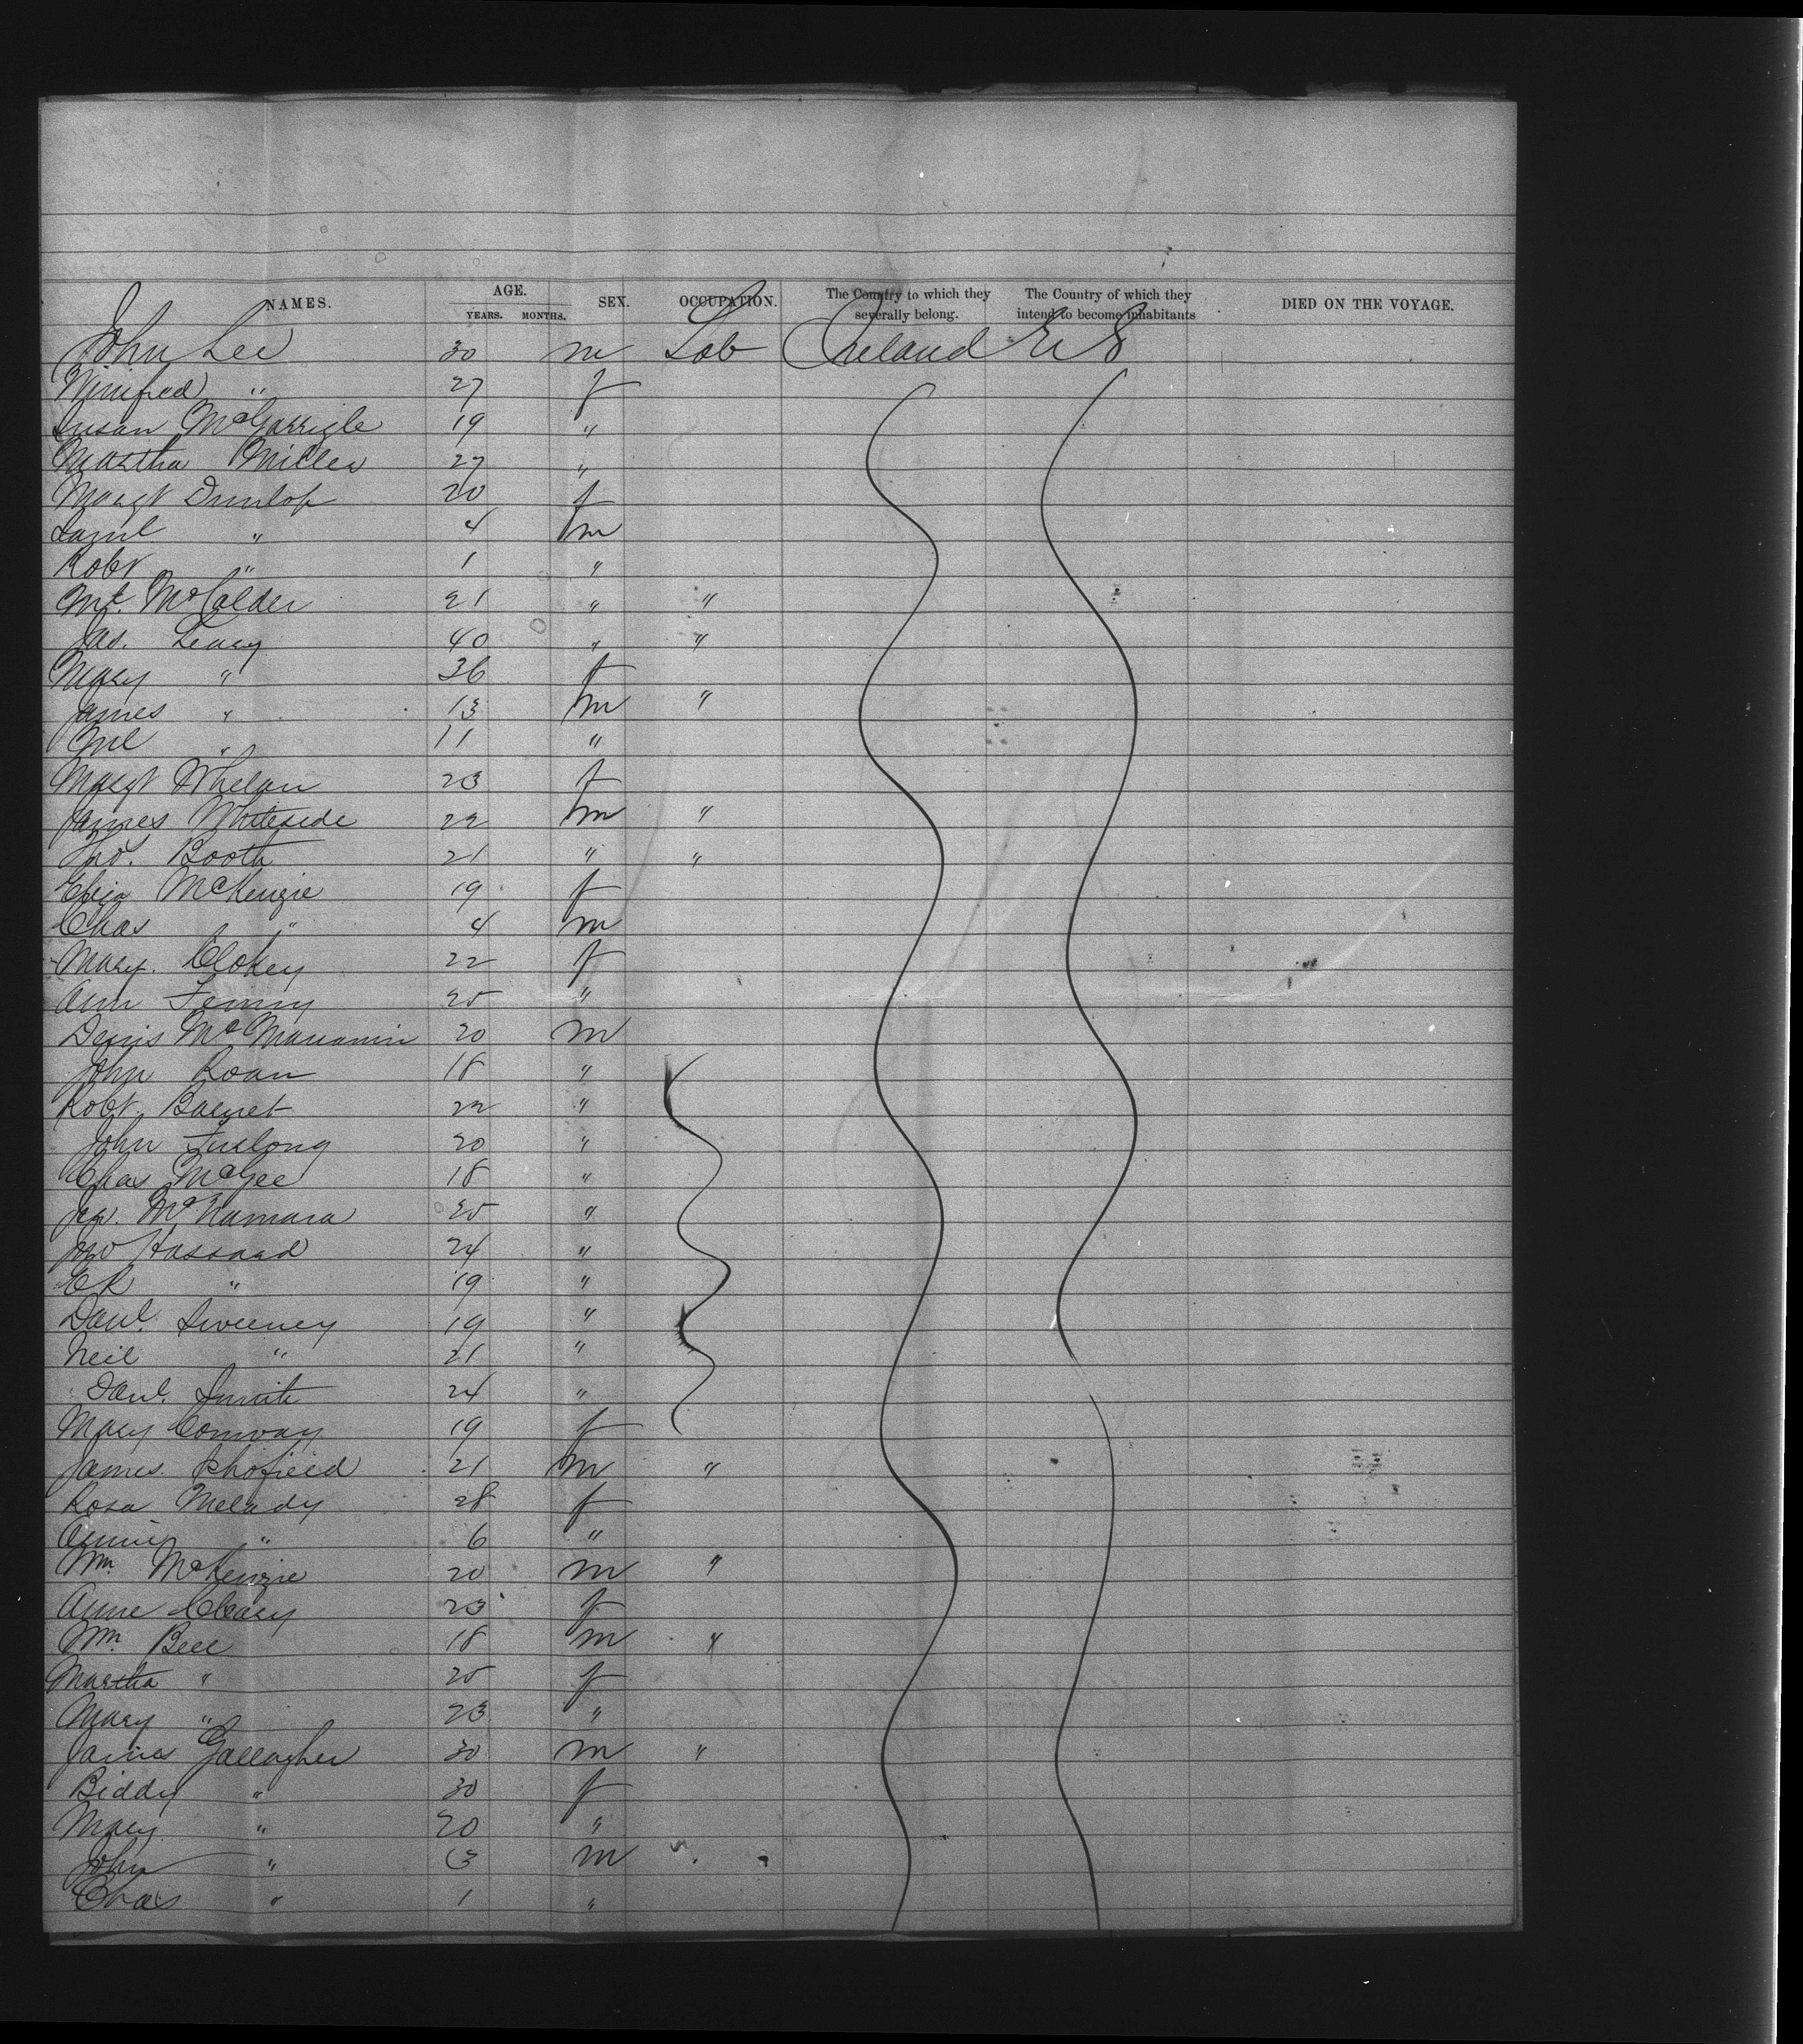 NAMES. AGE. YEARS. MONTHS. SEX. OCCUPATION. The Country to which they severally belong. The Country of which they intend to become inhabitants DIED ON THE VOYAGE.
John Lee 30 m Lab Ireland US
Winifred " 27 f
Susan McGarrigle 19 "
Martha Miller 27 "
Margt Dunlop 20 f
Saml " 4 m
Robt " 1 "
McCalder 21 " "
Jas. Leary 40 " "
Mary " 36 f
James " 13 m "
Ml " 11 "
Margt Whelan 23 f
James Whiteside 22 m "
Jno. Booth 21 " "
Eliza McKenzie 19 f
Chas " 4 m
Mary Clokey 22 f
Ann 25 "
Denis McManamin 20 m
John Roan 18 "
Robt. 22 "
John Furlong 20 "
Chas McGee 18 "
McNamara 25 "
Jno Hassard 24 "
" 19 "
Danl. Sweeney 19 "
Neil " 21 "
Danl. Smith 24 "
Mary Conway 19 f
James Schofield 21 m "
Rosa Melady 28 f
Annie " 6 "
Wm. McKenzie 20 m "
Anne Cleary 23 f
Wm. Bell 18 m "
Martha " 25 f
Mary " 23 "
James Gallagher 30 m "
Biddy " 30 f
Mary " 20 "
John " 13 m
Chas " 1 "